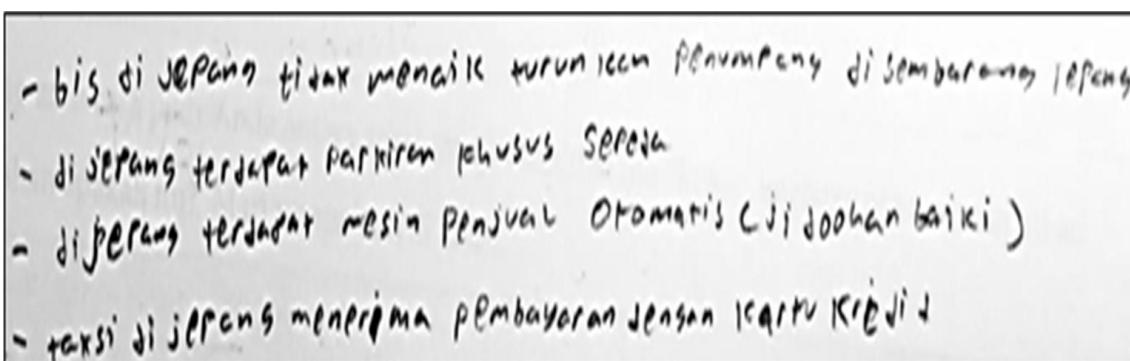 - bis di jepang tidak menaik turunkan penumpang di sembarang jepang
- di jepang terdapat parkiran khusus sepeda
- di jepang terdapat mesin penjual otomatis (jidoohan baiki)
- taksi di jepang menerima pembayaran dengan kartu kredid